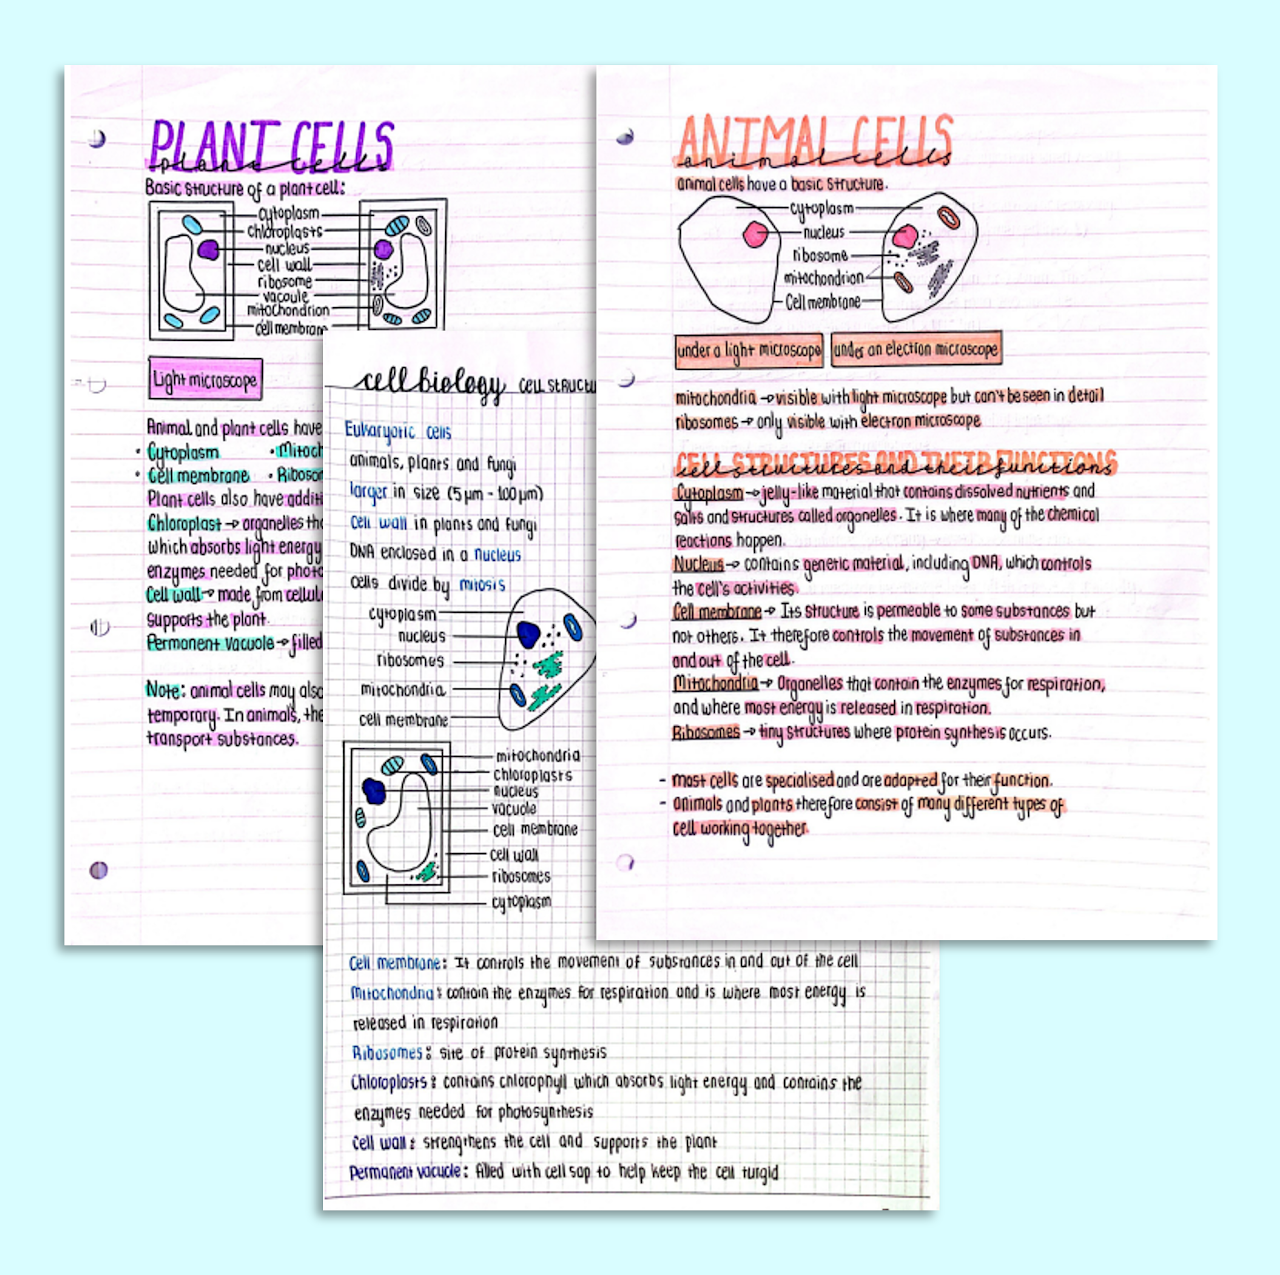 PLANT CELLS
plant cells
Basic structure of a plant cell:
cytoplasm
chloroplasts
nucleus
cell wall
ribosome
vacoule
mitochondrion
cell membrane
Light microscope
Animal and plant cells have
• Cytoplasm • Mitoch
• Cell membrane • Riboso
Plant cells also have additi
Chloroplast → organelles tha
which absorbs light energy
enzymes needed for photo
Cell wall → made from cellulo
supports the plant.
Permanent vacuole → filled
Note: animal cells may also
temporary. In animals, the
transport substances.
cell biology CELL STRUCTU
Eukaryotic cells
animals, plants and fungi
larger in size (5μm - 100μm)
cell wall in plants and fungi
DNA enclosed in a nucleus
cells divide by mitosis
cytoplasm
nucleus
ribosomes
mitochondria
cell membrane
mitochondria
chloroplasts
nucleus
vacuole
cell membrane
cell wall
ribosomes
cytoplasm
Cell membrane: It controls the movement of substances in and out of the cell
Mitochondria: contain the enzymes for respiration and is where most energy is
released in respiration
Ribosomes: site of protein synthesis
Chloroplasts: contains chlorophyll which absorbs light energy and contains the
enzymes needed for photosynthesis
Cell wall: strengthens the cell and supports the plant
Permanent vacuole: filled with cell sap to help keep the cell turgid
ANIMAL CELLS
animal cells
animal cells have a basic structure.
cytoplasm
nucleus
ribosome
mitochondrion
Cell membrane
under a light microscope
under an electron microscope
mitochondria → visible with light microscope but can't be seen in detail
ribosomes → only visible with electron microscope
CELL STRUCTURES AND THEIR FUNCTIONS
cell structures and their functions
Cytoplasm → jelly-like material that contains dissolved nutrients and
salts and structures called organelles. It is where many of the chemical
reactions happen.
Nucleus → contains generic material, including DNA, which controls
the cell's activities.
Cell membrane → Its structure is permeable to some substances but
not others. It therefore controls the movement of substances in
and out of the cell.
Mitochondria → Organelles that contain the enzymes for respiration,
and where most energy is released in respiration.
Ribosomes → tiny structures where protein synthesis occurs.
- most cells are specialised and are adapted for their function.
- animals and plants therefore consist of many different types of
cell working together.